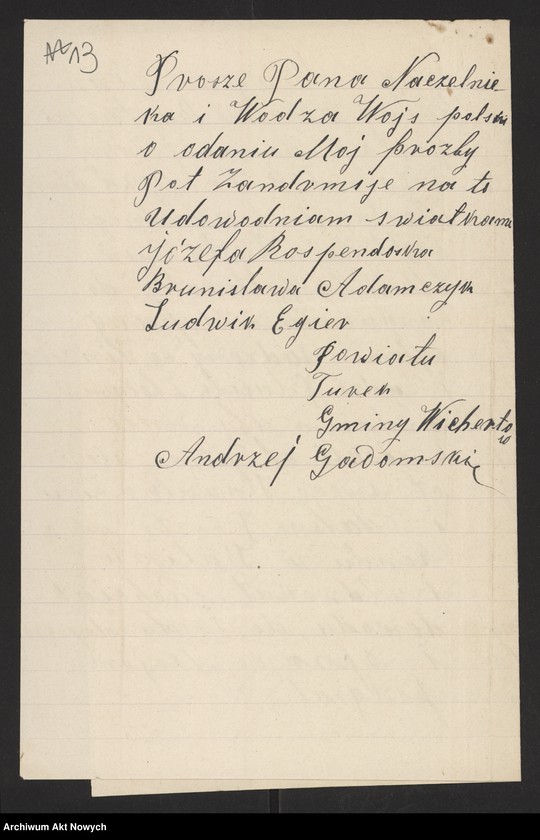 13
Prosze Pana Naczelnie
ka i Wodza Wojs polski
o odaniu Moj prozby
Pot Zandrmije na to
Udowodniam swiatkami
józefa Rospendoska
Brunisława Adamczyk
Ludwik Egier
Powiatu
Turek
Gminy Wichertow
Andrzej Gadomski
Archiwum Akt Nowych